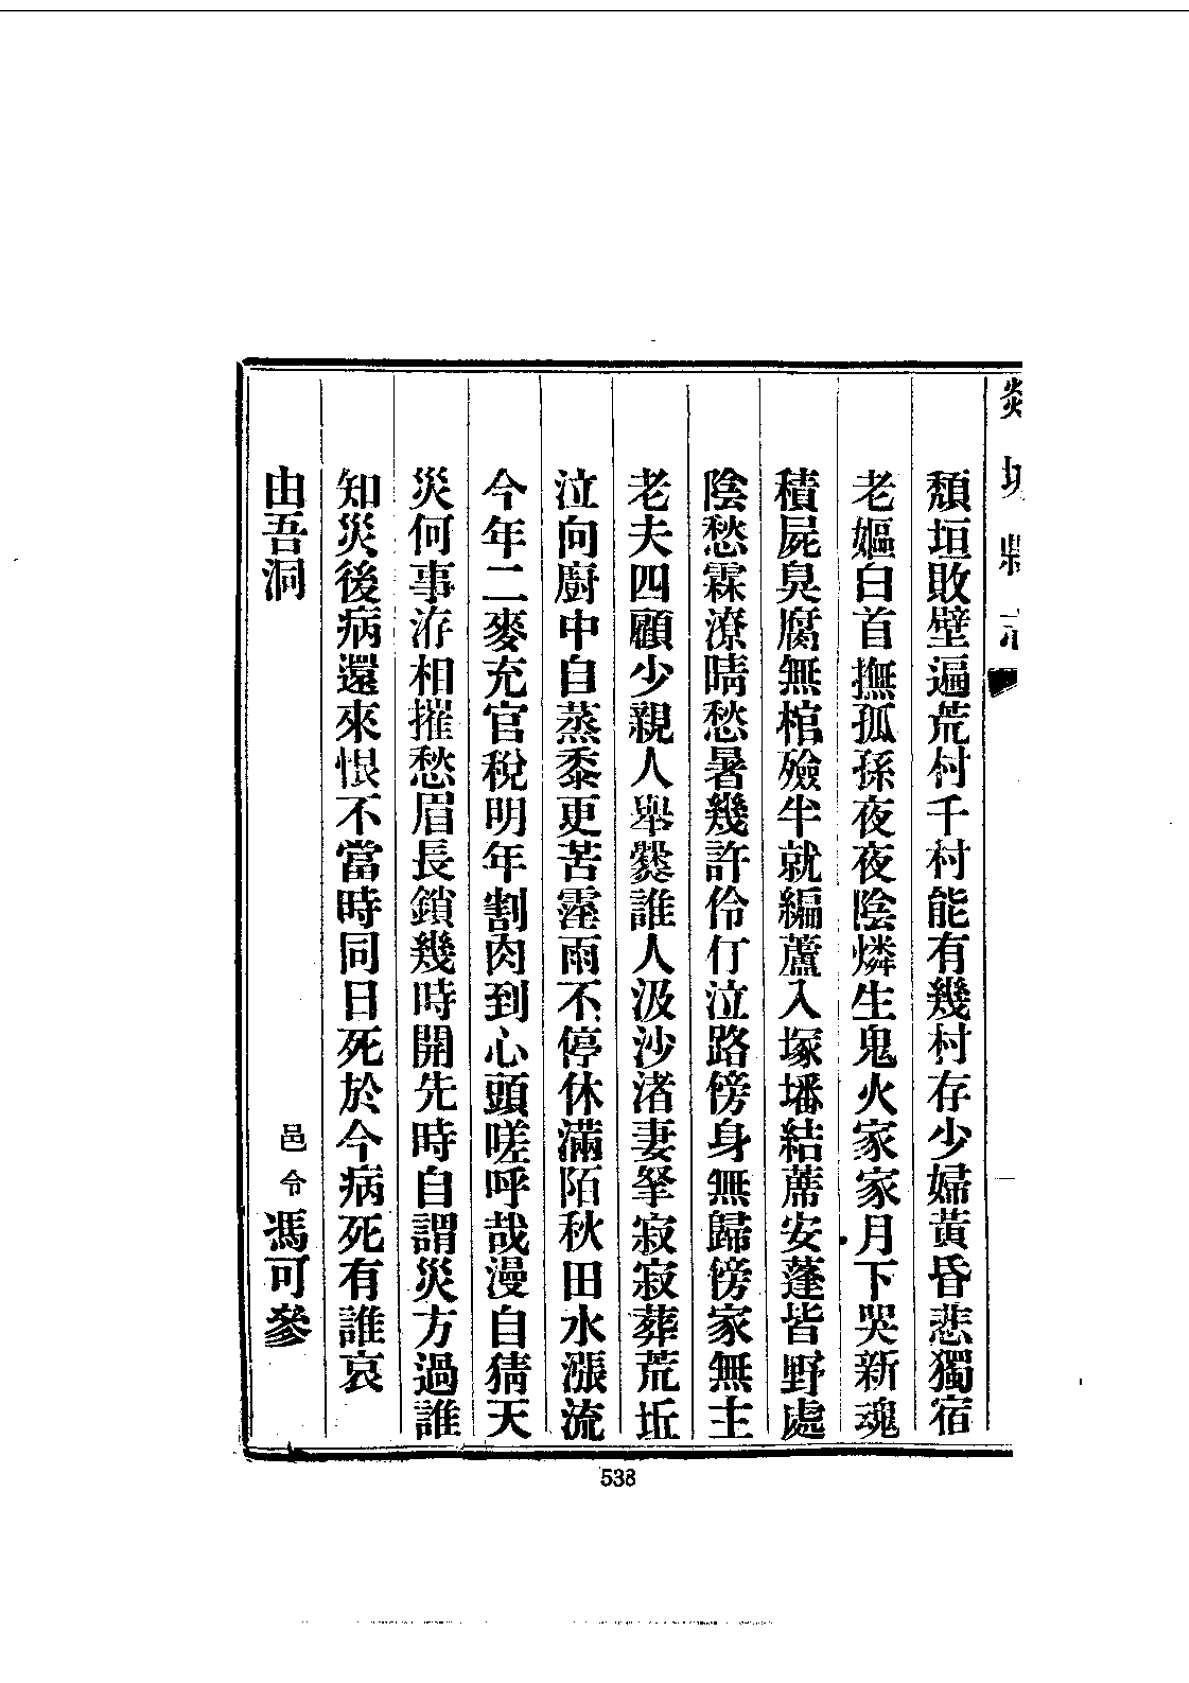 頽垣敗壁遍荒村千村能有幾村存少婦黃昏悲獨宿
老嫗白首撫孤孫夜夜陰燐生鬼火家家月下哭新魂
積屍臭腐無棺殮半就編蘆入塚墦結蓆安蓬皆野處
陰愁霖潦晴愁暑幾許伶仃泣路傍身無歸傍家無主
老夫四顧少親人舉爨誰人汲沙渚妻孥寂寂葬荒坵
泣向廚中自蒸黍更苦霪雨不停休滿陌秋田水漲流
今年二麥充官稅明年割肉到心頭嗟呼哉漫自猜天
災何事洊相摧愁眉長鎖幾時開先時自謂災方過誰
知災後病還來恨不當時同日死於今病死有誰哀
由吾洞 邑令馮可參
538